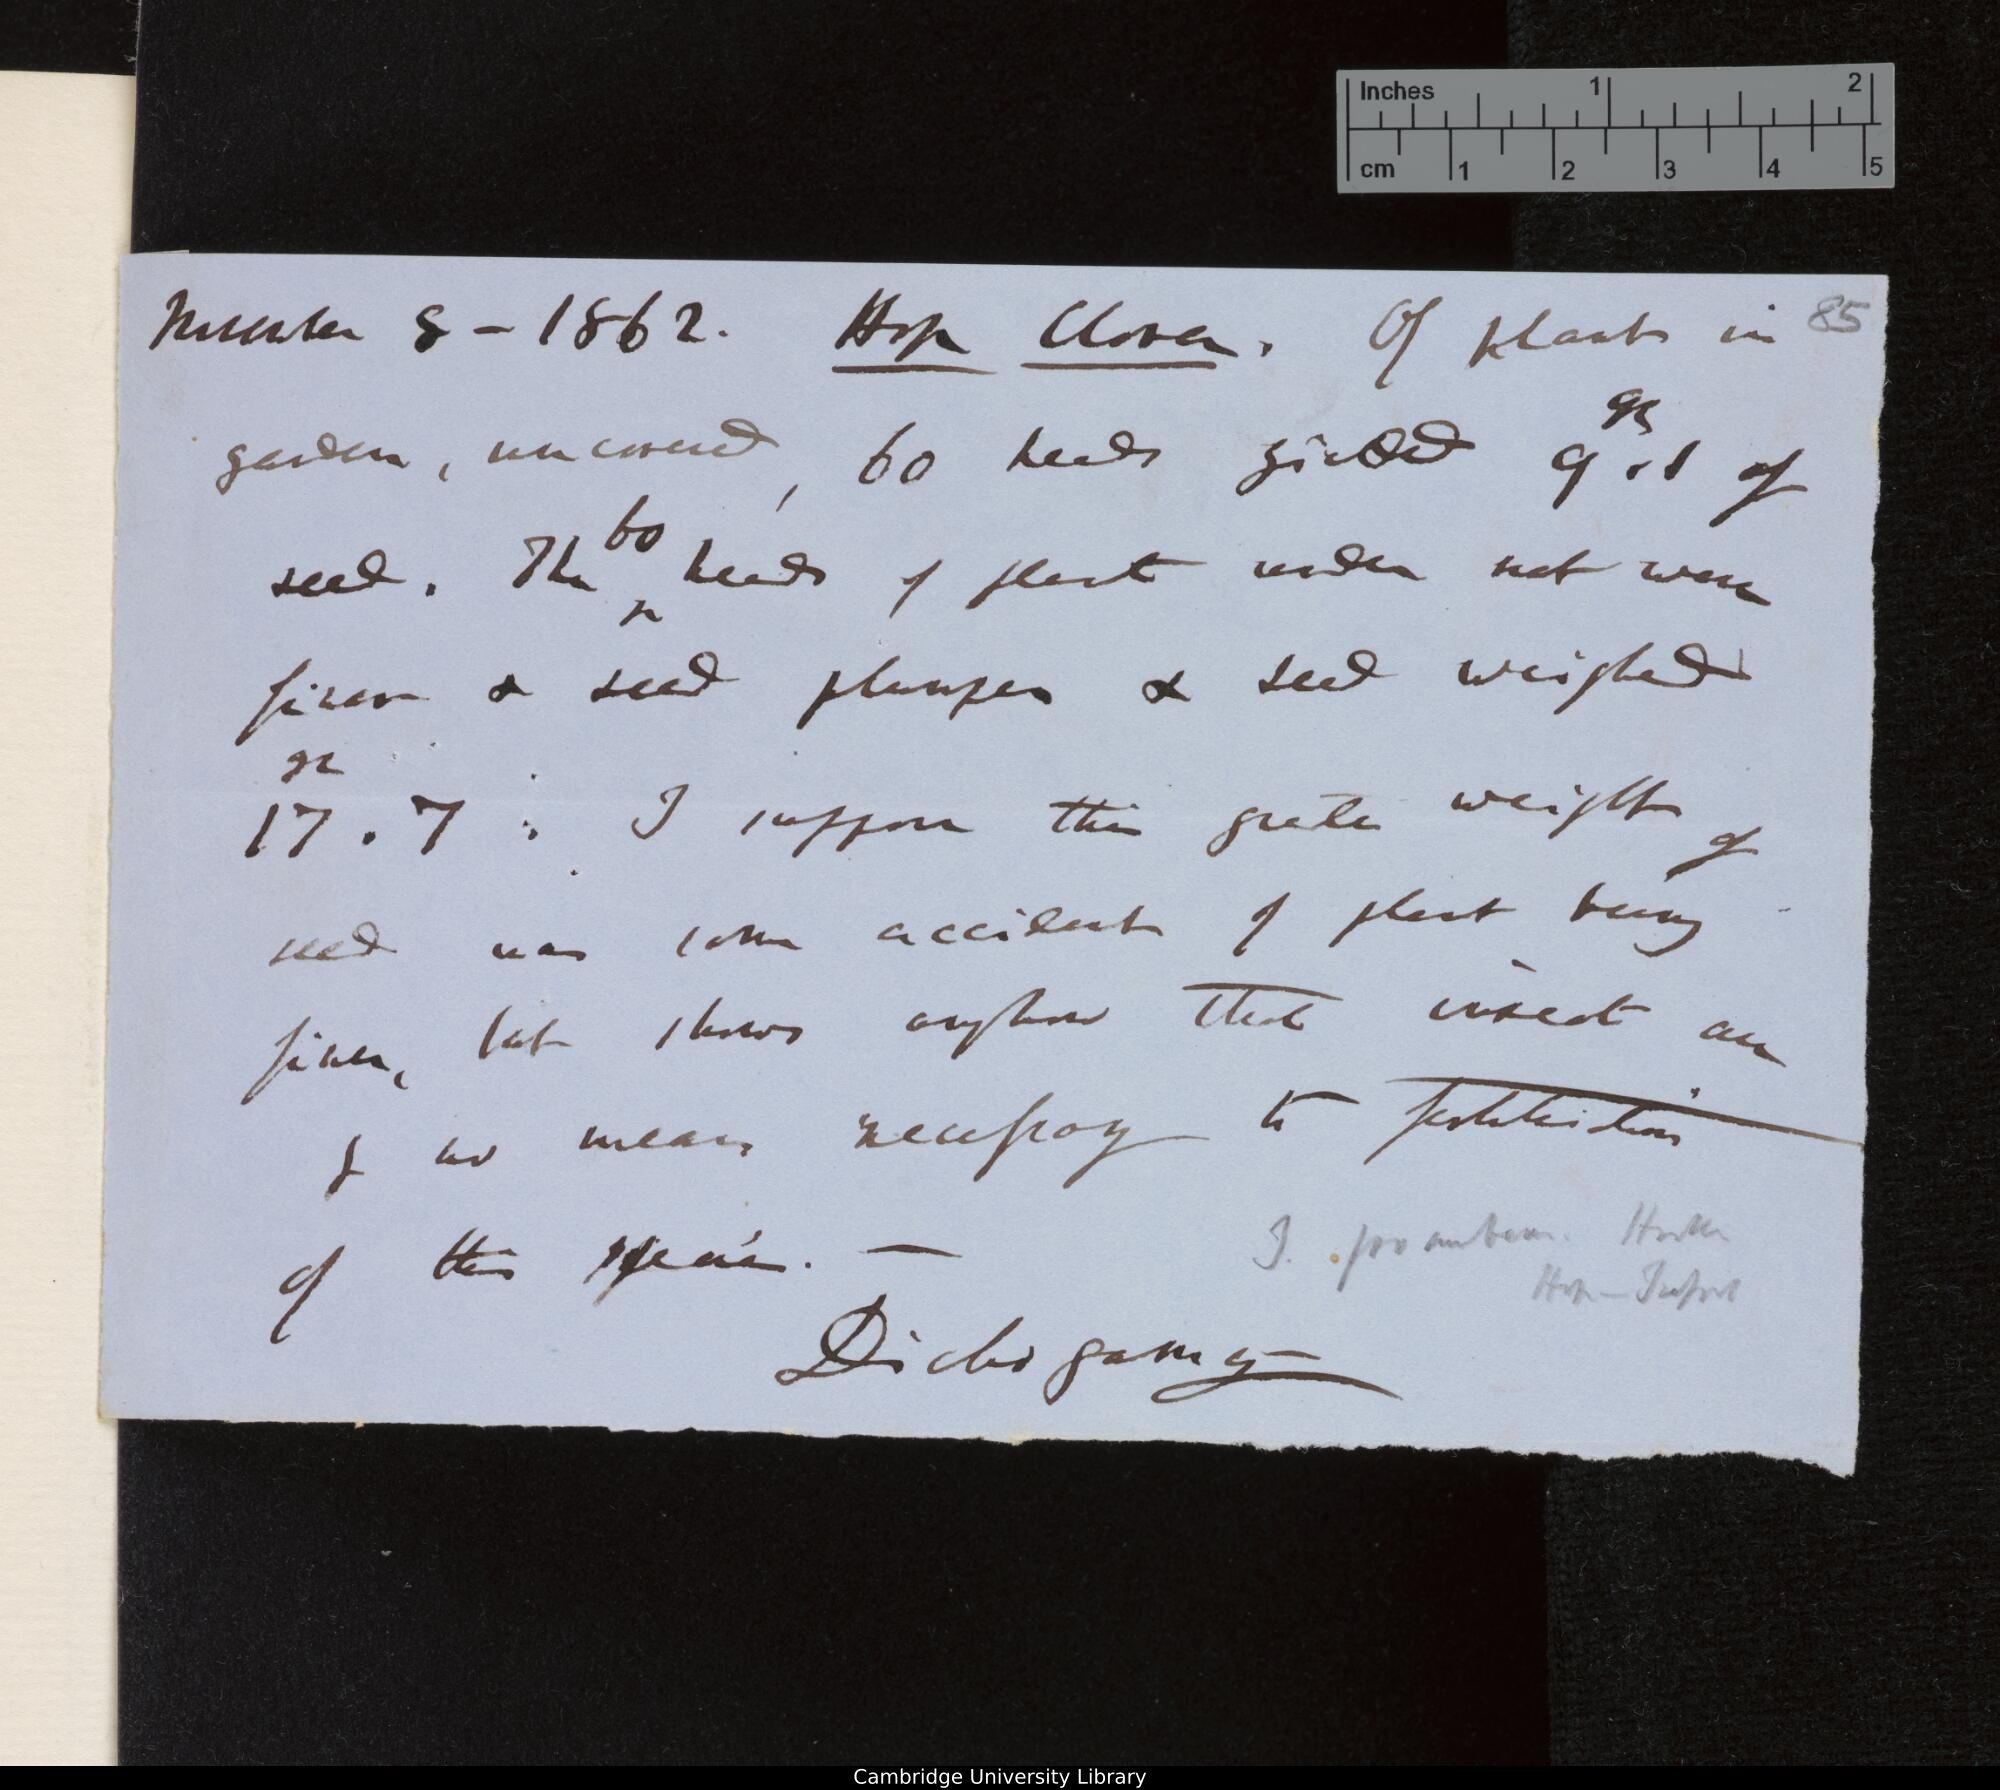 Inches 1 2
cm 1 2 3 4 5
85
November 8 – 1862. Hop Clover. Of plants in
garden, uncovered, 60 heads yielded 9 gr .1 of
seed. The 60 heads of plant under net were
finer & seed plumper & seed weighed
17 gr . 7 : I suppose this greater weight of
seed was some accident of plant being
finer, but shows anyhow that insect are
by no means necessary to fertilisation
of this species. —
T. procumbens. Hooker
Hop-Trefoil
Dichogamy
Cambridge University Library